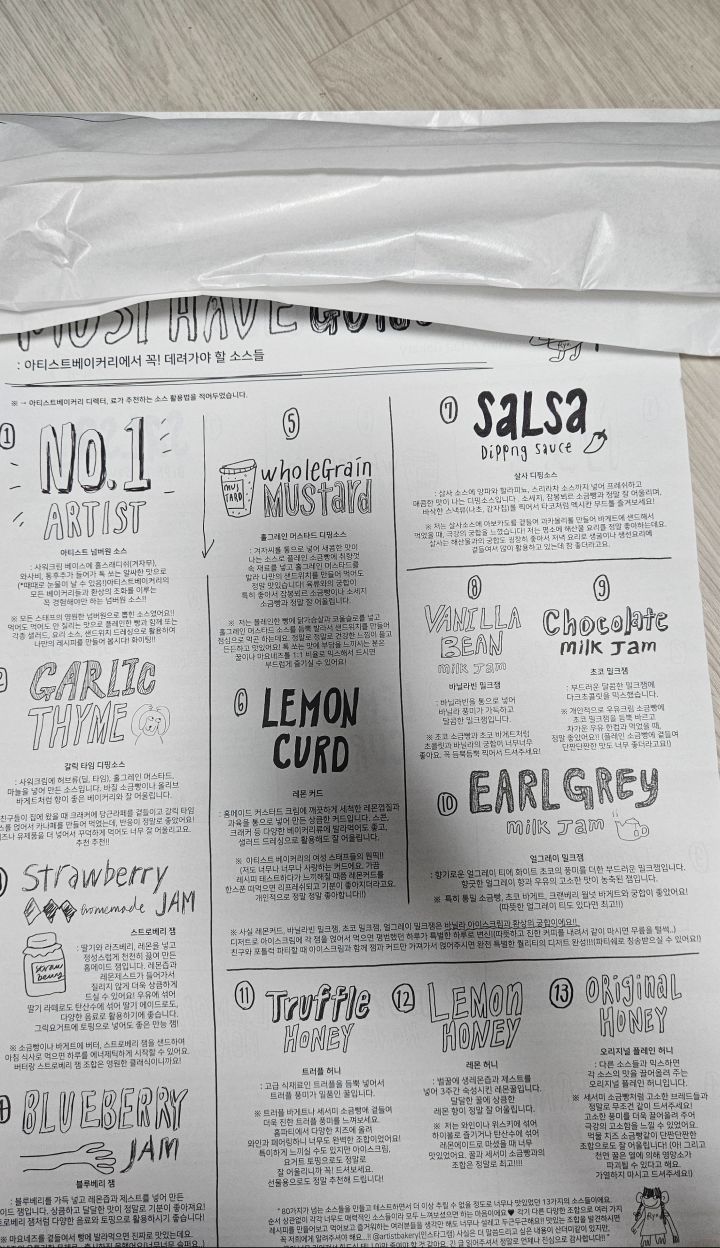 MUST HAVE
: 아티스트베이커리에서 꼭! 데려가야 할 소스들
※ → 아티스트베이커리 디렉터, 료가 추천하는 소스 활용법을 적어두었습니다.
1
NO.1
ARTIST
아티스트 넘버원 소스
: 사워크림 베이스에 홀스래디쉬(겨자무),
와사비, 통후추가 들어가 톡 쏘는 알싸한 맛으로
(*때때로 눈물이 날 수 있음!)아티스트베이커리의
모든 베이커리들과 환상의 조화를 이루는
꼭 경험해야만 하는 넘버원 소스!!
※ 모든 스태프의 영원한 넘버원으로 뽑힌 소스였어요!!
먹어도 먹어도 안 질리는 맛으로 플레인한 빵과 함께 또는
각종 샐러드, 요리 소스, 샌드위치 드레싱으로 활용하여
나만의 레시피를 만들어 봅시다! 화이팅!!
2
GARLIC
THYME
갈릭 타임 디핑소스
: 사워크림에 허브류(딜, 타임), 홀그레인 머스타드,
마늘을 넣어 만든 소스입니다. 바질 소금빵이나 올리브
바게트처럼 향이 좋은 베이커리와 잘 어울립니다.
친구들이 집에 왔을 때 크래커에 당근라페를 곁들이고 갈릭 타임
얹어서 카나페를 만들어 먹었는데, 반응이 정말로 좋았어요!
유제품을 더 넣어서 꾸덕하게 먹어도 너무 잘 어울리고요.
추천 추천!!
Strawberry
homemade JAM
straw
berry
스트로베리 잼
: 딸기와 라즈베리, 레몬을 넣고
정성스럽게 천천히 끓여 만든
홈메이드 잼입니다. 레몬즙과
레몬제스트가 들어가서
질리지 않게 더욱 상큼하게
드실 수 있어요! 우유에 섞어
딸기 라떼로도, 탄산수에 섞어 딸기 에이드로도,
다양한 음료로 활용하기에 좋습니다.
그릭요거트에 토핑으로 넣어도 좋은 만능 잼!
※ 소금빵이나 바게트에 버터, 스트로베리 잼을 샌드하여
아침 식사로 먹으면 하루를 에너제틱하게 시작할 수 있어요.
버터랑 스트로베리 잼 조합은 영원한 클래식이니까요!
BLUEBERRY
JAM
블루베리 잼
: 블루베리를 가득 넣고 레몬즙과 제스트를 넣어 만든
잼입니다. 상큼하고 달달한 맛이 정말로 기분이 좋아져요!
스트로베리 잼처럼 다양한 음료와 토핑으로 활용하시기 좋습니다!
※ 마요네즈를 곁들여서 빵에 발라먹으면 진짜로 맛있는데요.
5
MUS
TARD
wholeGrain
MUStard
홀그레인 머스타드 디핑소스
: 겨자씨를 통으로 넣어 새콤한 맛이
나는 소스로 플레인 소금빵에 취향껏
속 재료를 넣고 홀그레인 머스타드를
발라 나만의 샌드위치를 만들어 먹어도
정말 맛있습니다! 육류와의 궁합이
특히 좋아서 잠봉뵈르 소금빵이나 소세지
소금빵과 정말 잘 어울립니다.
※ 저는 플레인한 빵에 닭가슴살과 코울슬로를 넣고
홀그레인 머스타드 소스를 듬뿍 발라서 샌드위치를 만들어
점심으로 먹곤 하는데요. 정말로 건강한 느낌이 들고
든든하고 맛있어요! 톡 쏘는 맛에 부담을 느끼시는 분은
꿀이나 마요네즈를 1:1 비율로 믹스해서 드시면
부드럽게 즐기실 수 있어요!
6
LEMON
CURD
레몬 커드
: 홈메이드 커스터드 크림에 깨끗하게 세척한 레몬껍질과
과육을 통으로 넣어 만든 상큼한 커드입니다. 스콘,
크래커 등 다양한 베이커리류에 발라먹어도 좋고,
샐러드 드레싱으로 활용해도 잘 어울립니다.
※ 아티스트 베이커리의 여성 스태프들의 원픽!!
(저도 너무나 너무나 사랑하는 커드예요. 가끔
레시피 테스트하다가 느끼해질 때쯤 레몬커드를
한스푼 떠먹으면 리프레쉬되고 기분이 좋아지더라고요.
개인적으로 정말 정말 좋아합니다!!)
7
SaLSa
Dippng Sauce
살사 디핑소스
: 살사 소스에 양파와 할라피뇨, 스리라차 소스까지 넣어 프레쉬하고
매콤한 맛이 나는 디핑소스입니다. 소세지, 잠봉뵈르 소금빵과 정말 잘 어울리며,
바삭한 스낵류(나초, 감자칩)를 찍어서 타코처럼 멕시칸 무드를 즐겨보세요!
※ 저는 살사소스에 아보카도를 곁들여 과카몰리를 만들어 바게트에 샌드해서
먹었을 때, 극강의 궁합을 느꼈습니다! 저는 평소에 해산물 요리를 정말 좋아하는데요.
살사는 해산물과의 궁합도 굉장히 좋아서 저녁 요리로 생굴이나 생선요리에
곁들여서 많이 활용하고 있는데 참 좋더라고요.
8
VANILLA
BEAN
milk Jam
바닐라빈 밀크잼
: 바닐라빈을 통으로 넣어
바닐라 풍미가 가득하고
달콤한 밀크잼입니다.
※ 초코 소금빵과 초코 바게트처럼
초콜릿과 바닐라의 궁합이 너무너무
좋아요. 꼭 듬뿍듬뿍 찍어서 드셔주세요!
9
Chocolate
milk Jam
초코 밀크잼
: 부드러운 달콤한 밀크잼에
다크초콜릿을 믹스했습니다.
※ 개인적으로 우유크림 소금빵에
초코 밀크잼을 듬뿍 바르고
차가운 우유 한컵과 먹었을 때,
정말 좋았어요!! (플레인 소금빵에 곁들여
단짠단짠한 맛도 너무 좋더라고요!)
10
EARL GREY
milk Jam
얼그레이 밀크잼
: 향기로운 얼그레이 티에 화이트 초코의 풍미를 더한 부드러운 밀크잼입니다.
향긋한 얼그레이 향과 우유의 고소한 맛이 농축된 잼입니다.
※ 특히 통밀 소금빵, 초코 바게트, 크랜베리 월넛 바게트와 궁합이 좋았어요!
(따뜻한 얼그레이 티도 있다면 최고!!)
※ 사실 레몬커드, 바닐라빈 밀크잼, 초코 밀크잼, 얼그레이 밀크잼은 바닐라 아이스크림과 환상의 궁합이에요!!
디저트로 아이스크림에 각 잼을 얹어서 먹으면 평범했던 하루가 특별한 하루로 변신!(따뜻하고 진한 커피를 내려서 같이 마시면 무릎을 탈썩..)
친구와 포틀럭 파티할 때 아이스크림과 함께 잼과 커드만 가져가서 얹어주시면 완전 특별한 퀄리티의 디저트 완성!!!!(파티쉐로 칭송받으실 수 있어요!)
11
Truffle
HONEY
트러플 허니
: 고급 식재료인 트러플을 듬뿍 넣어서
트러플 풍미가 일품인 꿀입니다.
※ 트러플 바게트나 세서미 소금빵에 곁들여
더욱 진한 트러플 풍미를 느껴보세요.
홈파티에서 다양한 치즈에 올려
와인과 페어링하니 너무도 완벽한 조합이었어요!
특이하게 느끼실 수도 있지만 아이스크림,
요거트 토핑으로도 정말로
잘 어울리니까 꼭! 드셔보세요.
선물용으로도 정말 추천해 드립니다!
12
LEMON
HONEY
레몬 허니
: 벌꿀에 생레몬즙과 제스트를
넣어 3주간 숙성시킨 레몬꿀입니다.
달달한 꿀에 상큼한
레몬 향이 정말 잘 어울립니다.
※ 저는 와인이나 위스키에 섞어
하이볼로 즐기거나 탄산수에 섞어
레몬에이드로 마셨을 때 너무
맛있었어요. 꿀과 세서미 소금빵과의
조합은 정말로 최고!!!!
13
ORIGINAL
HONEY
오리지널 플레인 허니
: 다른 소스들과 믹스하면
각 소스의 맛을 끌어올려 주는
오리지널 플레인 허니입니다.
※ 세서미 소금빵처럼 고소한 브레드들과
정말로 무조건 같이 드셔주세요!
고소한 풍미를 더욱 끌어올려 주어
극강의 고소함을 느낄 수 있었어요.
먹물 치즈 소금빵같이 단짠단짠한
조합으로도 잘 어울립니다! (아! 그리고
천연 꿀은 열에 의해 영양소가
파괴될 수 있다고 해요.
가열하지 마시고 드셔주세요!)
" 80가지가 넘는 소스들을 만들고 테스트하면서 더 이상 추릴 수 없을 정도로 너무나 맛있었던 13가지의 소스들이에요.
순서 상관없이 각각 너무도 매력적인 소스들이라 모두 느껴보셨으면 하는 마음이에요♥ 각기 다른 다양한 조합으로 여러 가지
레시피를 만들어보고 먹어보고 즐거워하는 여러분들을 생각만 해도 너무나 설레고 두근두근해요!! 맛있는 조합을 발견하시면
꼭 저희에게 알려주셔야 해요..!! @artistbakery(인스타그램) 사실은 더 말씀드리고 싶은 내용이 산더미같이 있지만,